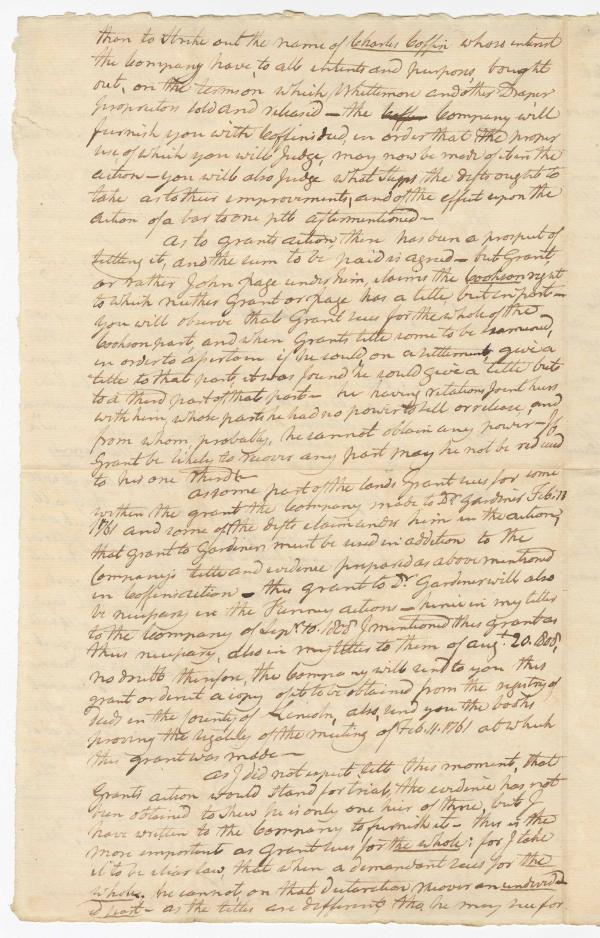 than to Strike out the name of Charles Coffin whose interest
the Company have, to all intents and purposes, bought
out, on the terms on which Whittemore and other Draper
proprietors sold and released – the Company will
furnish you with Coffins deed, in order that the proper
use of which you will Judge, may now be made of it in the
action – you will also Judge what steps the defts ought to
take as to their improvements, and of the effect upon the
action of a bar to one ptff aftermentioned –
As to Grants action, there has been a prospect of
settling it, and the sum to be paid is agreed – but Grant,
or rather John page under him, claims the Cookson right
to which neither Grant or page has a title, but in part –
you will observe that Grant sues for the whole of the
Cookson part, and when Grants title come to be examined,
in order to ascertain if he could, on a settlement, give a
title to that part, it was found he could give a title but
to a third part of that part – he having relations Joint heirs
with him whose parts he had no power to sell or release, and
from whom, probably, he cannot obtain any power – If
Grant be likely to recover any part may he not be reduced
to his one third –
As some part of the lands Grant sues for come
within the grant the Company made to Dr Gardiner Feb. 11
1761 and some of the defts claim under him in the action,
that grant to Gardiner must be used in addition to the
Companys title and evidence proposed as abovementioned
in Coffins action – this grant to Dr Gardiner will also
be necessary in the Kenney actions – hence in my letter
to the Company of Sepr 10. 1808 I mentioned this grant as
thus necessary, also in my letter to them of augt 20. 1808,
no doubt therefore, the Company will send to you this
grant or direct a copy of it to be obtained from the registry of
deeds in the County of Lincoln, also, send you the books
proving the legality of the meeting of Feb. 11. 1761 at which
this grant was made –
As I did not expect till this moment, that
Grants action would stand for trial, the evidence has not
been obtained to shew he is only one heir of three, but I
have written to the Company to furnish it – this is the
more important as Grant sues for the whole: for I take
it to be clear law, that when a demandant sues for the
whole, he cannot, on that declaration, recover an undivid–
ed part – as the titles are different, tho, he may sue for